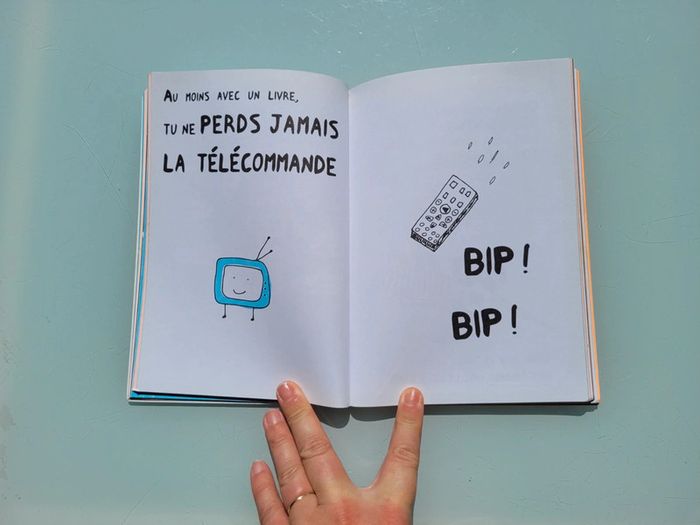 AU MOINS AVEC UN LIVRE,
TU NE PERDS JAMAIS
LA TÉLÉCOMMANDE
BIP !
BIP !